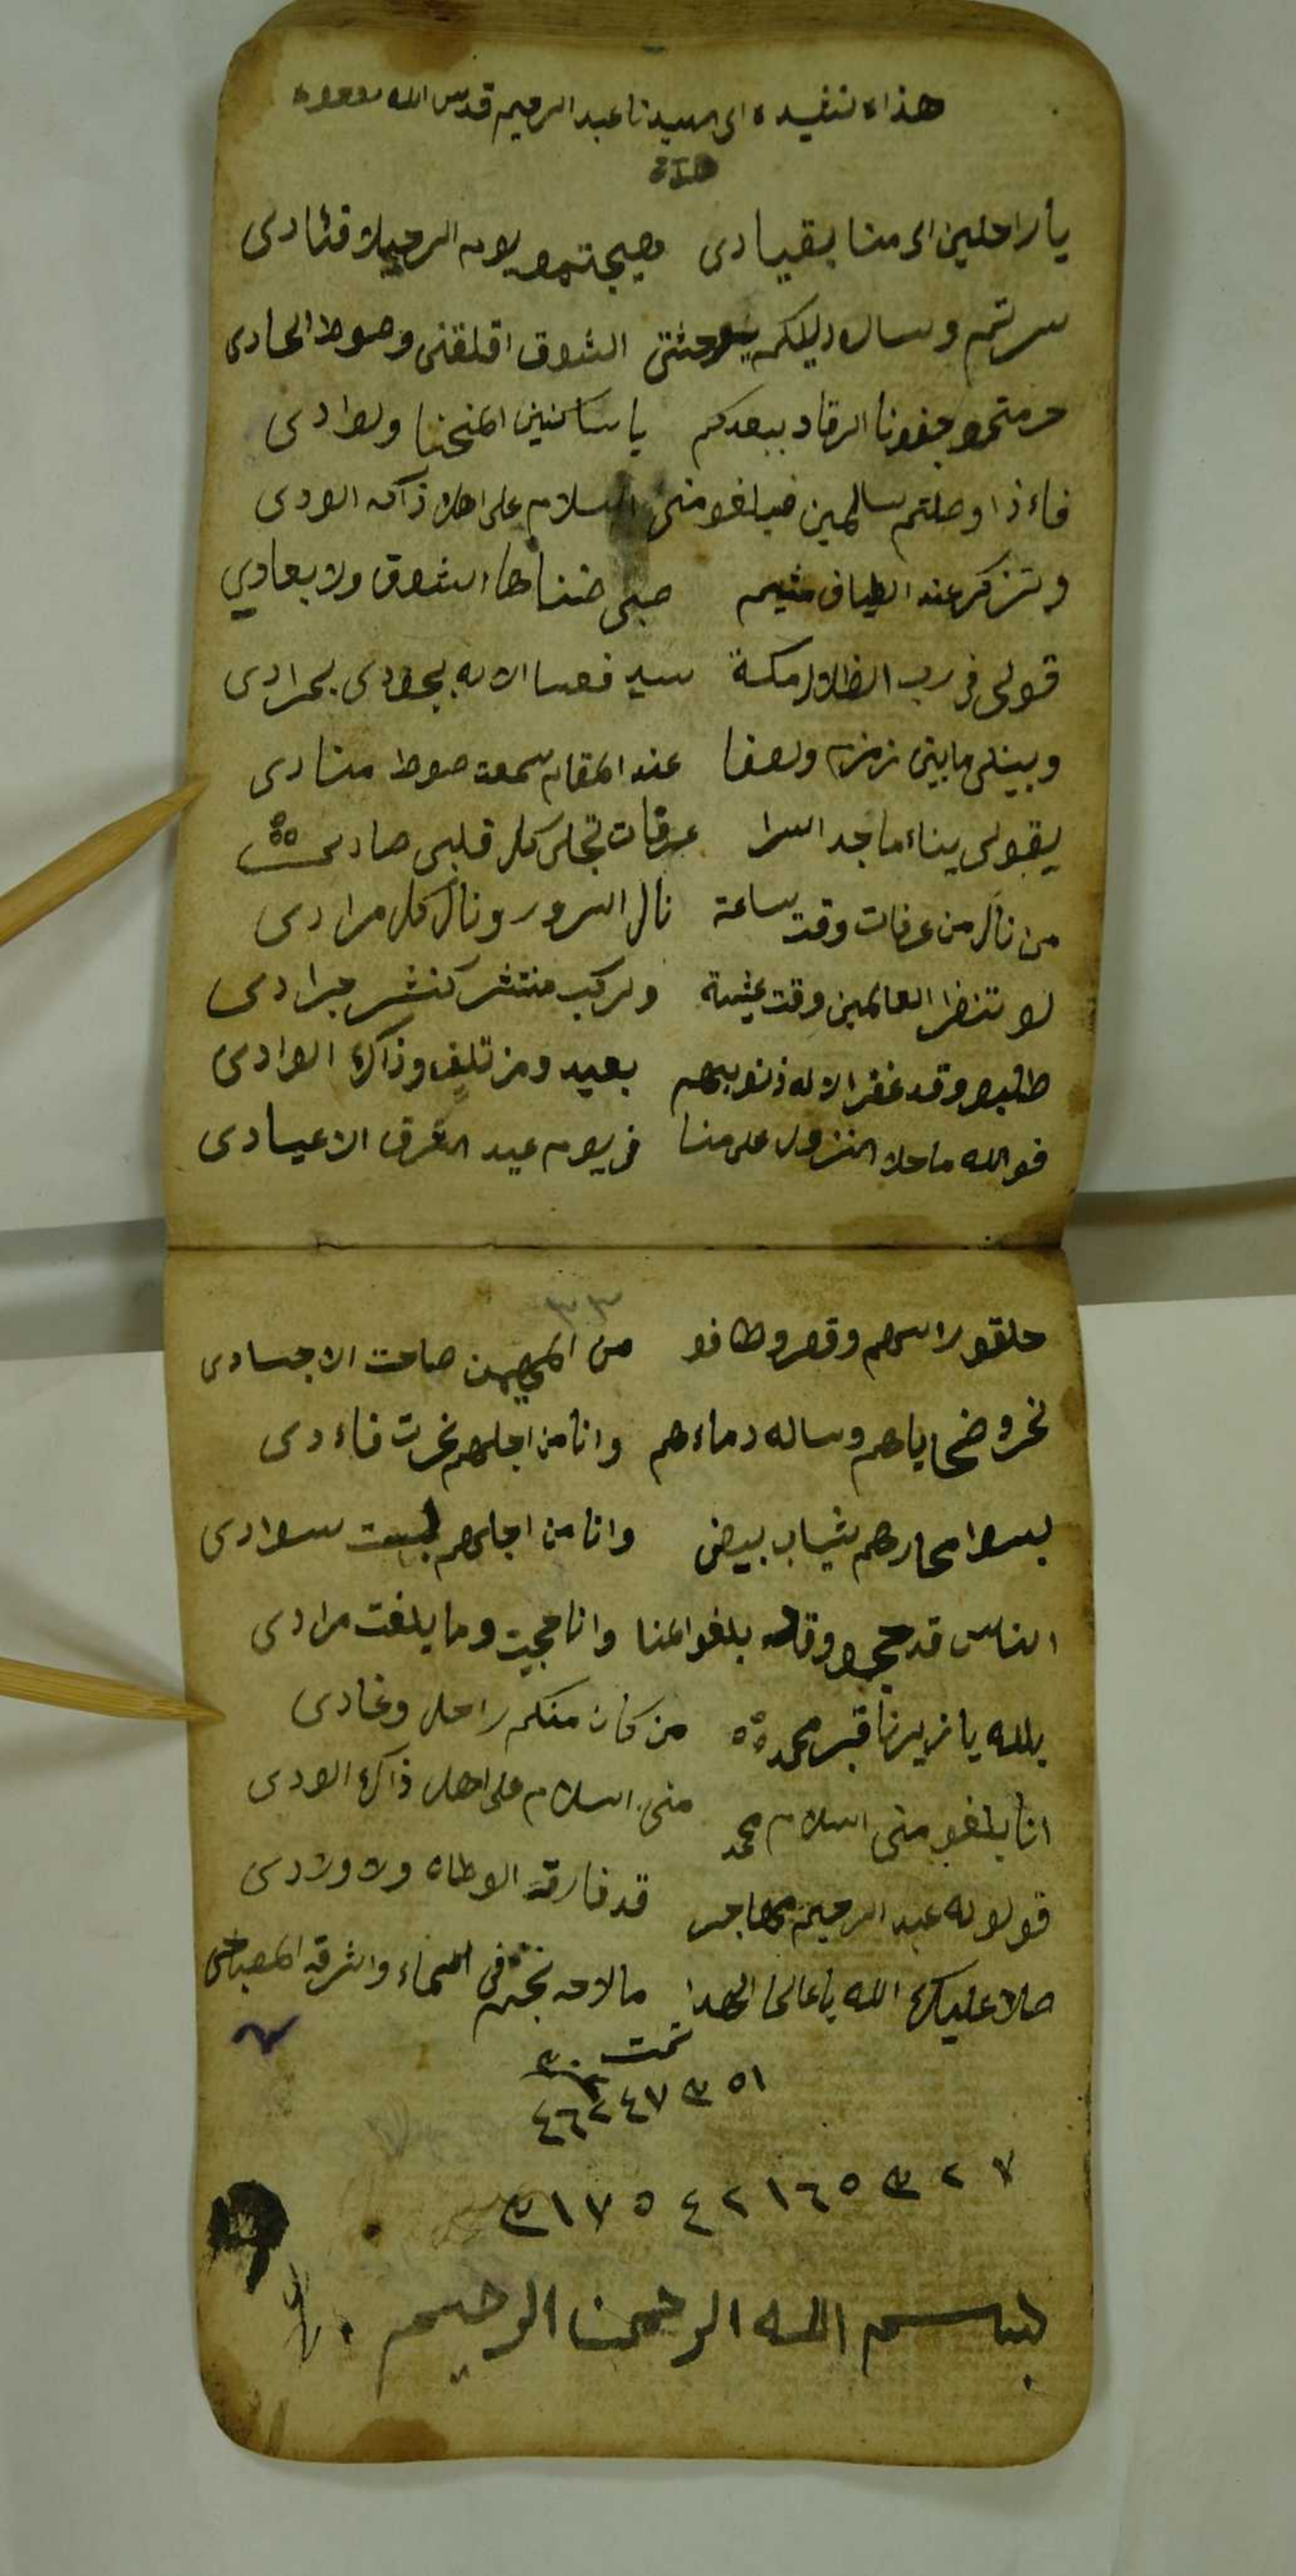 هذاه نفيده الى سيدنا عبد الرحيم قدس الله
يأراحلين الى منا بقيادى هيجتمو يوم الرحيلا فئادى
سرتم وسار دليلكم يا وحشتى الشوق اقلقنى وصوط الحادى
حرمتمو جفونا الرقاد ببعدكم يا ساكنين المنحنا ولوادى
فاءذا وصلتم سالمين فبلغو منى السلام على اهلا ذاكه الودى
وتزكر عند الطياف متيم صبى ضناها الشوق ولا بعادي
قولى فى رب الظلال مكة سير فعسا الاله بجودى بمرادى
وبينلى مابينى زمزم ولصفا عند المقام سمعت صوط منادى
يقولى يناء ماجد السرا عرفات تجلى كل قلبى صادى
من نال من عرفات وقت ساعة نال السرور ونال كل مرادى
لو تنضرا لعالمين وقت عشية ولركب منتشر كنشر جرادى
طلبو وقد غفر الاله ذنوبهم بعيد ومزتلف وذاكه الوادى
فوالله ماحلا النزول على منا فى يوم عيد اشرف الاعيادى
٣٣
حلقو راسهم وقصر وطافو من المهيمن صامت الاجسادى
نحرو ضحاياهم وساله دماءهم وانا من اجلهم نحرت فاءدى
لبسوا محارهم بثياب بيض وانا من اجلهم لبست سوادى
الناس قد حجو وقد بلغو المنا وانا حجيت وما بلغت مرادى
بلله يا زيرنا قبر محمد من كان منكم راحل وغادى
انا بلغو منى السلام محمد منى السلام على اهل ذاكه الودى
قولو له عبد الرحيم مهاجر قد فارقة الوطاه ولا ولادى
صلا عليكه الله يا عالما الهدا مالاحه نجم فى السماء واشرقه المصباحى
تمت
٥١ ٣ ٤٧
٤٦٢
٧ ٢ ٣ ٥ ٦ ١ ٢ ٤ ٥ ٧ ١ ٣
بسم الله الرحمن الرحيم